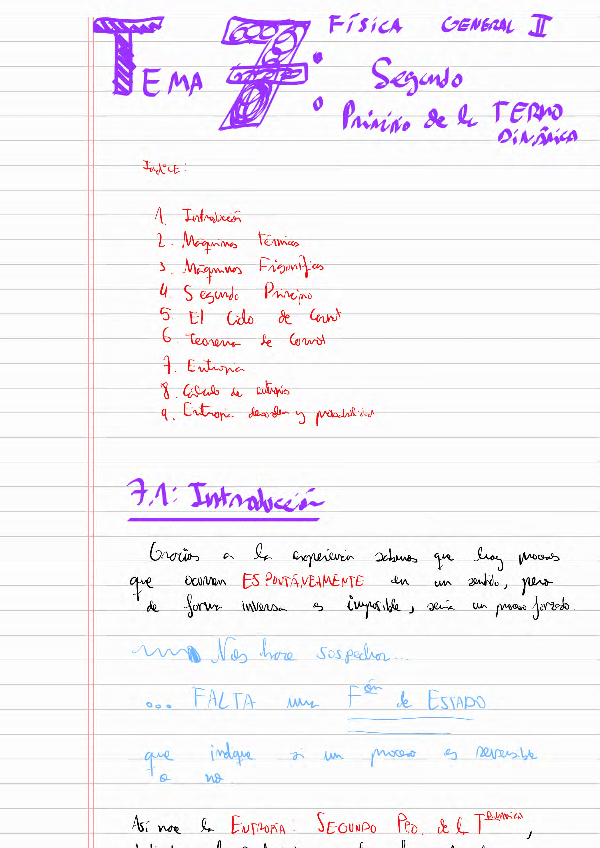 FÍSICA GENERAL II
TEMA 7: Segundo
Principio de la TERMO
DINÁMICA
Índice:
1. Introducción
2. Máquinas Térmicas
3. Máquinas Frigoríficas
4 Segundo Principio
5 El Ciclo de Carnot
6 Teorema de Carnot
7. Entropía
8. Cálculo de entropía
9. Entropía desorden y probabilidad
7.1: Introducción
Gracias a la experiencia sabemos que hay procesos
que ocurren ESPONTÁNEAMENTE en un sentido, pero
de forma inversa es imposible, sería un proceso forzado.
Nos hace sospechar...
... FALTA una Fón de ESTADO
que indique si un proceso es reversible
o no.
Así nace la ENTROPÍA: SEGUNDO PPO. de la Tdinámica,